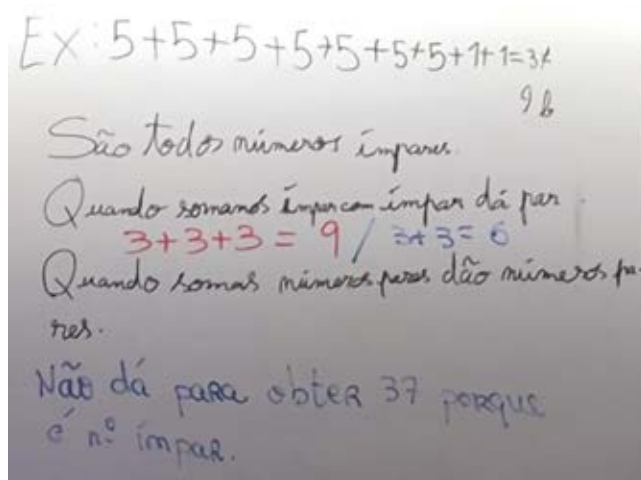 Ex: 5+5+5+5+5+5+5+1+1=37
9 b
São todos números ímpares.
Quando somamos ímpar com ímpar dá par.
3+3+3=9 / 3+3=6
Quando somas números pares dão números pa-
res.
Não dá para obter 37 porque
é nº ímpar.